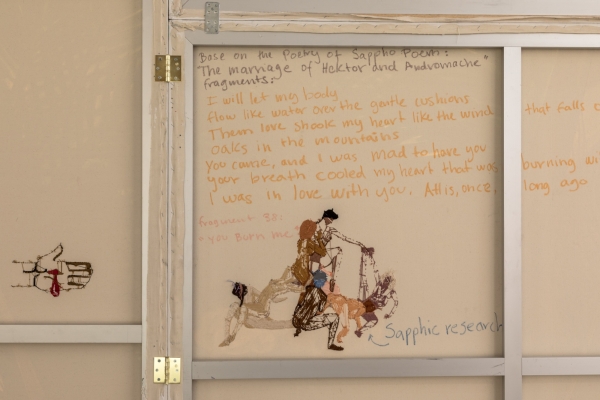 Base on the Poetry of Sappho Poem:
"The marriage of Hektor and Andromache"
fragments:
I will let my body
flow like water over the gentle cushions
Them love shook my heart like the wind that falls
oaks in the mountains
You came, and I was mad to have you
your breath cooled my heart that was burning
I was in love with you. Attis, once, long ago
fragment 38:
"You Burn me"
Sapphic research